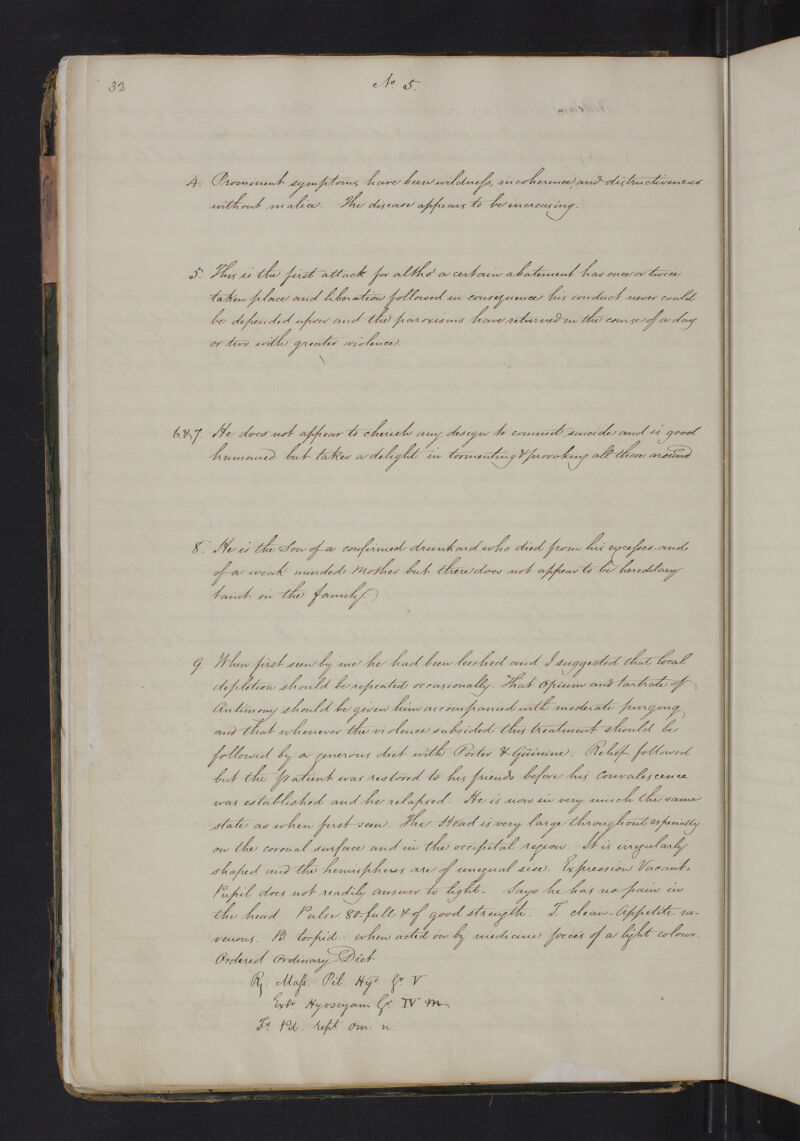 32
No 5.
4. Prominent symptoms have been wildness, incoherence, and distructiveness
without malice. The disease appears to be increasing.
5. This is the first attack for altho' a certain abatement has once or twice
taken place and liberation followed in consequence his conduct never could
be depended upon and the paroxisms have returned in the course of a day
or two with greater violence.
6&7. He does not appear to cherish any design to commit suicide and is good
humoured but takes a delight in tormenting & provoking all those around
8. He is the Son of a confirmed drunkard who died from his excesses and
of a weak minded Mother but there does not appear to be hereditary
taint in the family.
9. When first seen by me he had been leeched and I suggested that local
depletion should be repeated occasionally. That Opium and tartrate of
Antimony should be given him accompanied with moderate purging
and that whenever the violence subsided this treatment should be
followed by a generous diet with Porter & Quinine. Relief followed
but the patient was restored to his friends before his convalescence
was established and he relapsed. He is now in very much the same
state as when first seen. The Head is very large throughout especially
on the coronal surface and in the occipital region. It is irregularly
shaped and the hemispheres are of unequal size. Expression Vacant.
Pupil does not readily answer to light. Says he has no pain in
the head. Pulse 80-full & of good strength. T. clean. Appetite ra-
venous. B. torpid - when acted on by medicine fœces of a light colour.
Ordered Ordinary Diet
Rx. Mass. Pil. Hyd Gr V
Extr Hyoscyam Gr IV m
Ft Pil. rept om. n.